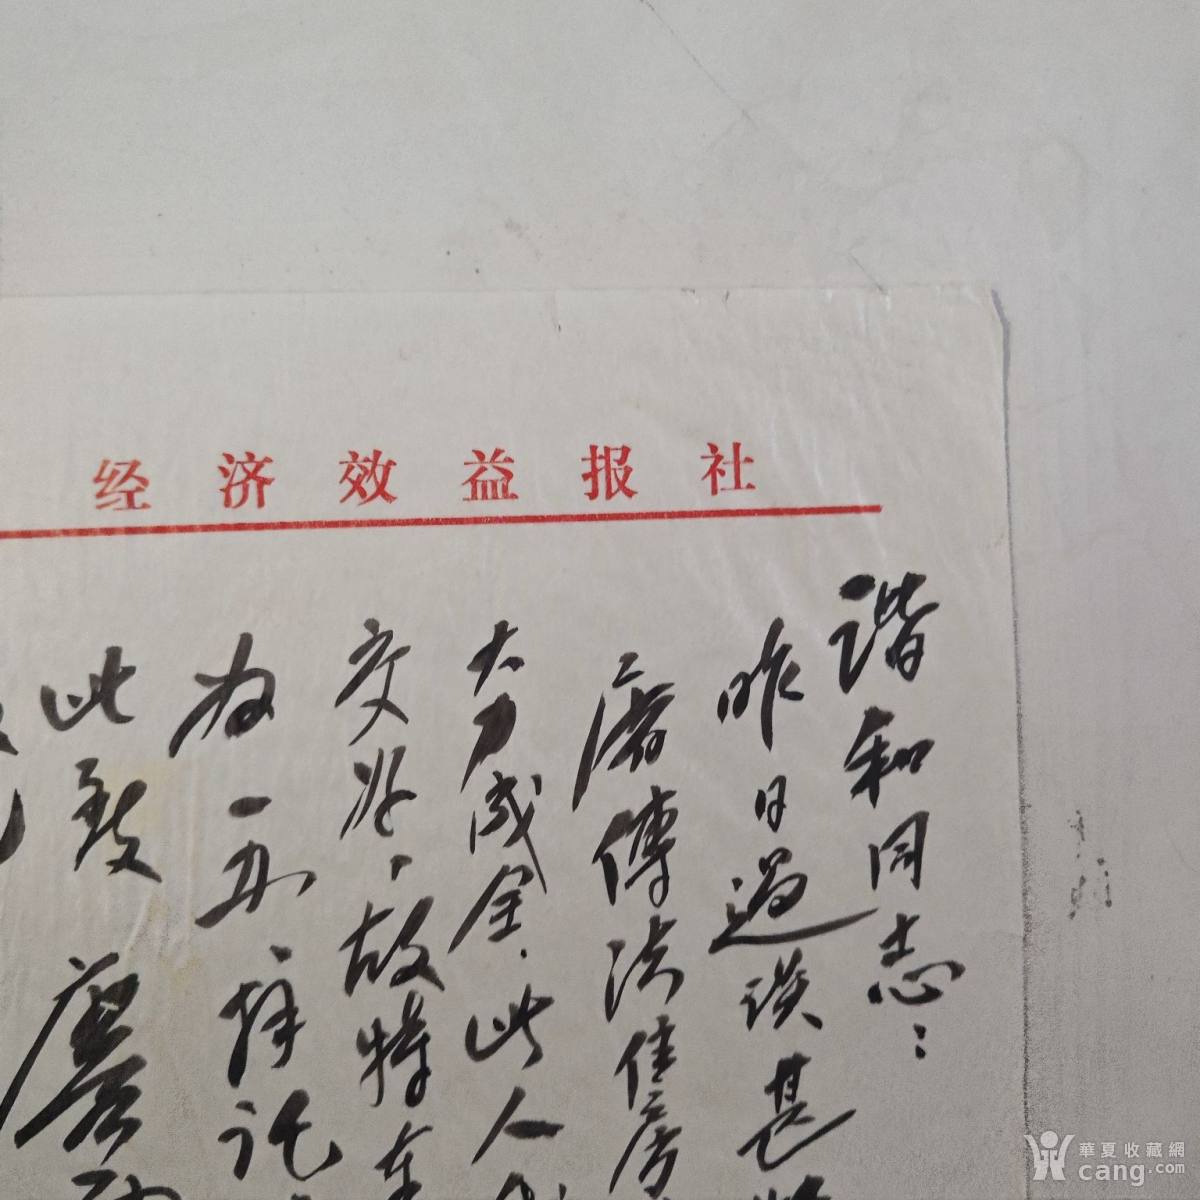 经济效益报社
谐和同志：
昨日过谈甚
唐传法住房
大力成全，此人
交好，故特在
为一办，拜托
此致
華夏收藏網
cang.com